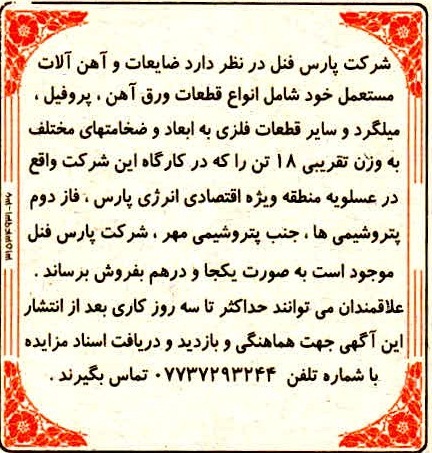 شرکت پارس فنل در نظر دارد ضایعات و آهن آلات
مستعمل خود شامل انواع قطعات ورق آهن ، پروفیل ،
میلگرد و سایر قطعات فلزی به ابعاد و ضخامتهای مختلف
به وزن تقریبی ۱۸ تن را که در کارگاه این شرکت واقع
در عسلویه منطقه ویژه اقتصادی انرژی پارس ، فاز دوم
پتروشیمی ها ، جنب پتروشیمی مهر ، شرکت پارس فنل
موجود است به صورت یکجا و درهم بفروش برساند .
علاقمندان می توانند حداکثر تا سه روز کاری بعد از انتشار
این آگهی جهت هماهنگی و بازدید و دریافت اسناد مزایده
با شماره تلفن ۰۷۷۳۷۲۹۳۲۴۴ تماس بگیرند .